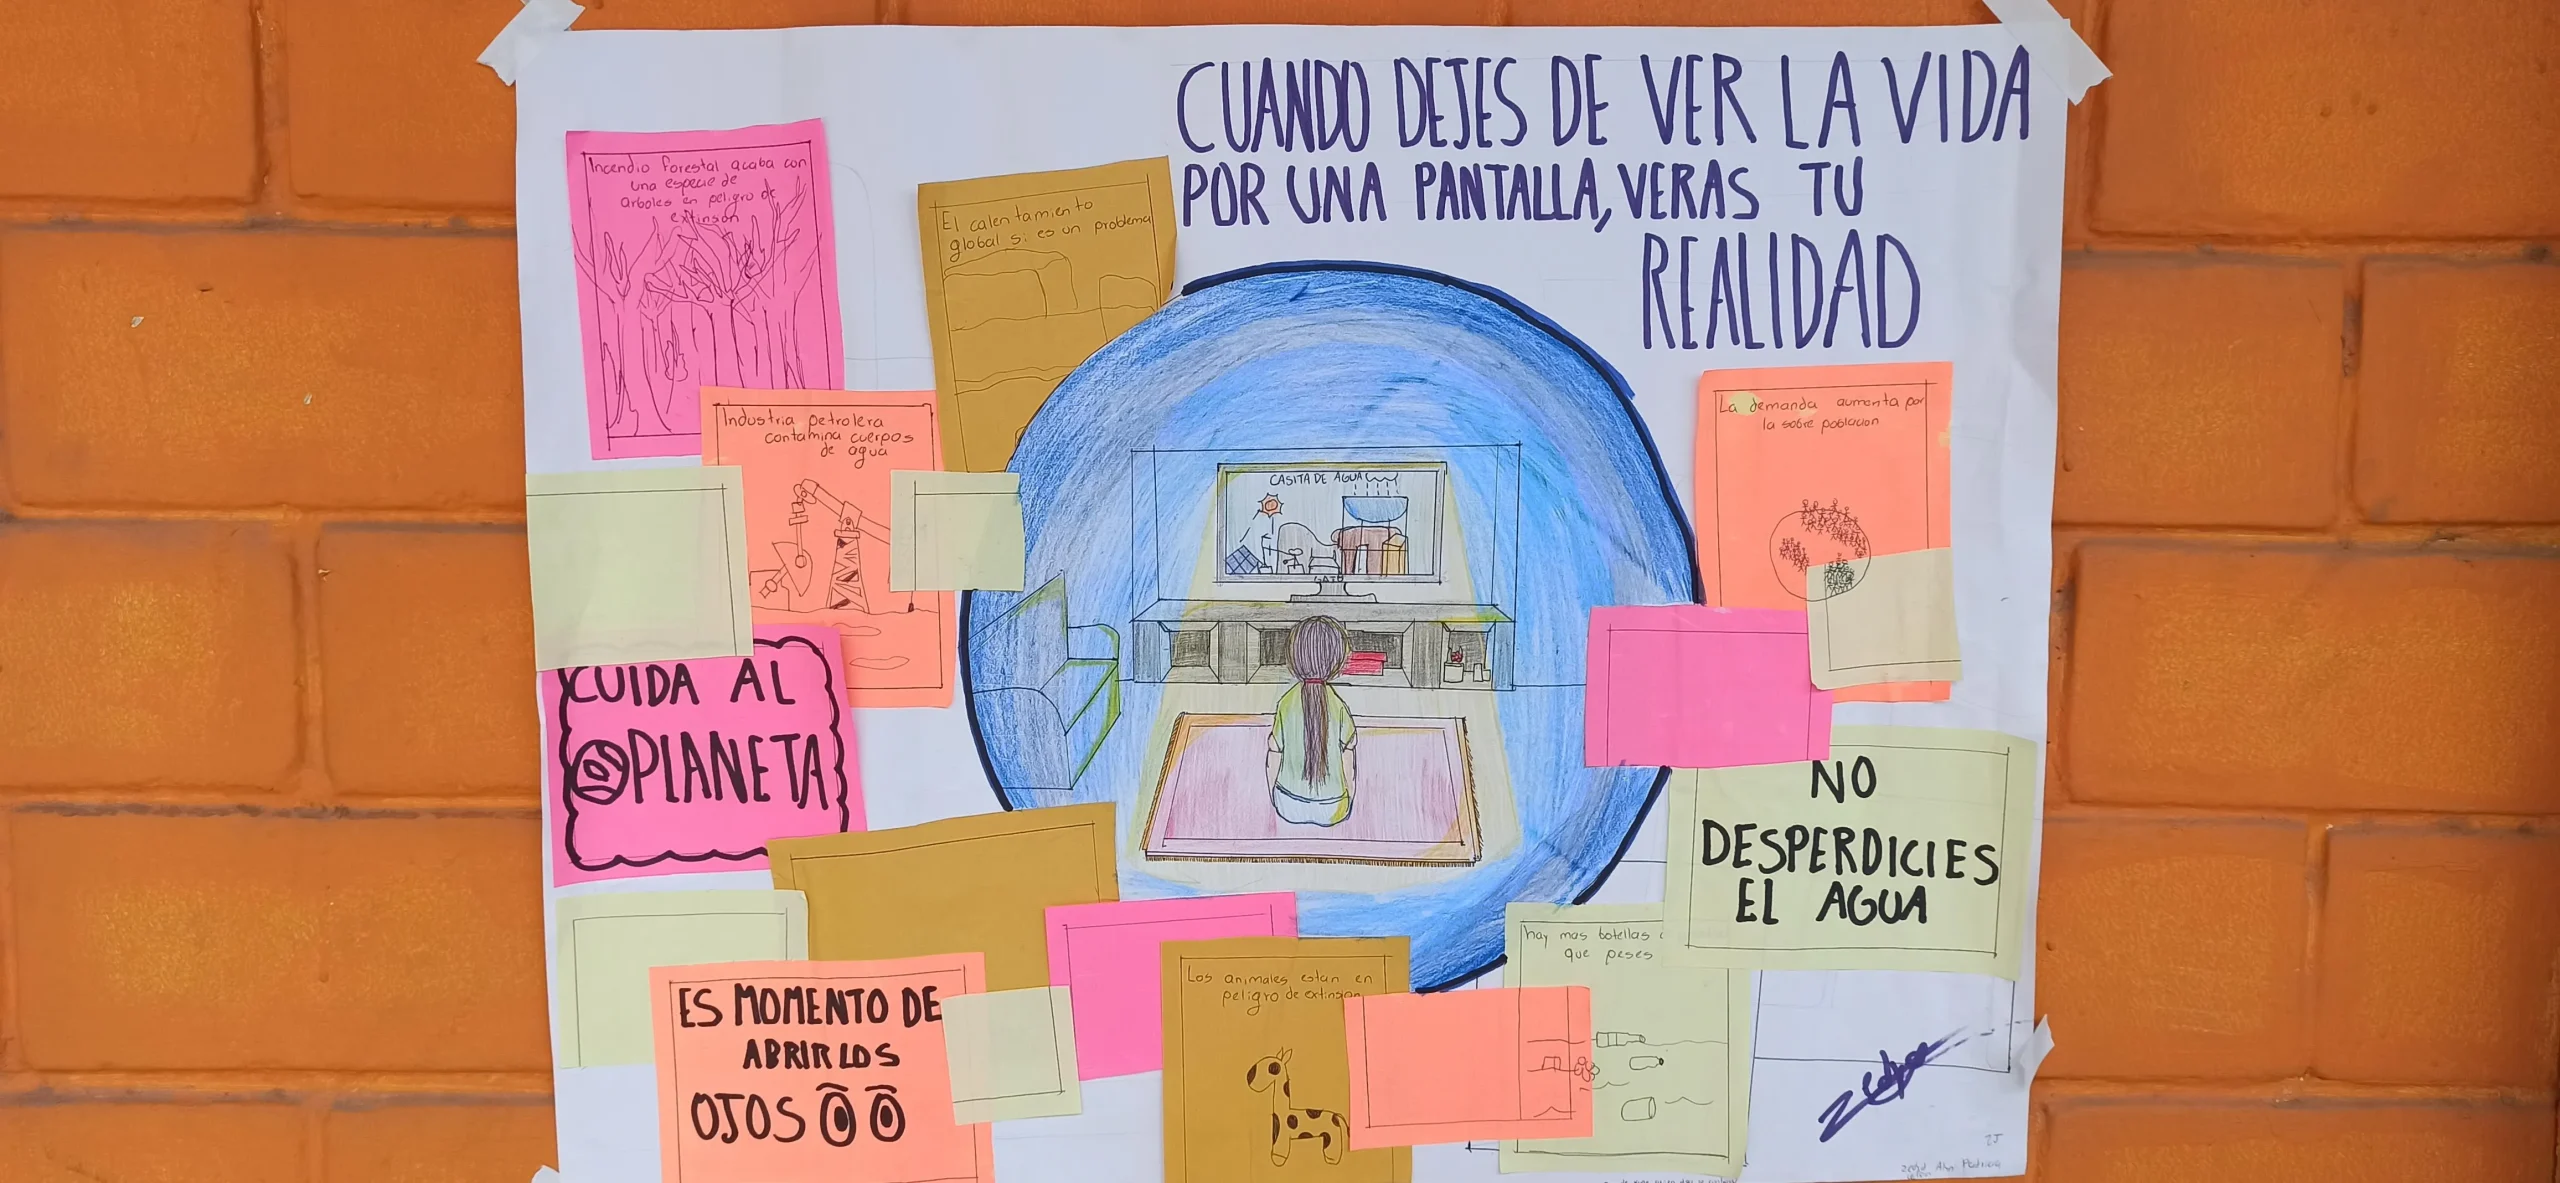 CUANDO DEJES DE VER LA VIDA
POR UNA PANTALLA, VERAS TU
REALIDAD
Incendio forestal acaba con
una especie de
arboles en peligro de
extinsón
El calentamiento
global si es un problema
Industria petrolera
contamina cuerpos
de agua
La demanda aumenta por
la sobre poblacion
CASITA DE AGUA
CUIDA AL
PLANETA
NO
DESPERDICIES
EL AGUA
ES MOMENTO DE
ABRIR LOS
OJOS
Los animales estan en
peligro de extinsion
hay mas botellas
que peses
2J